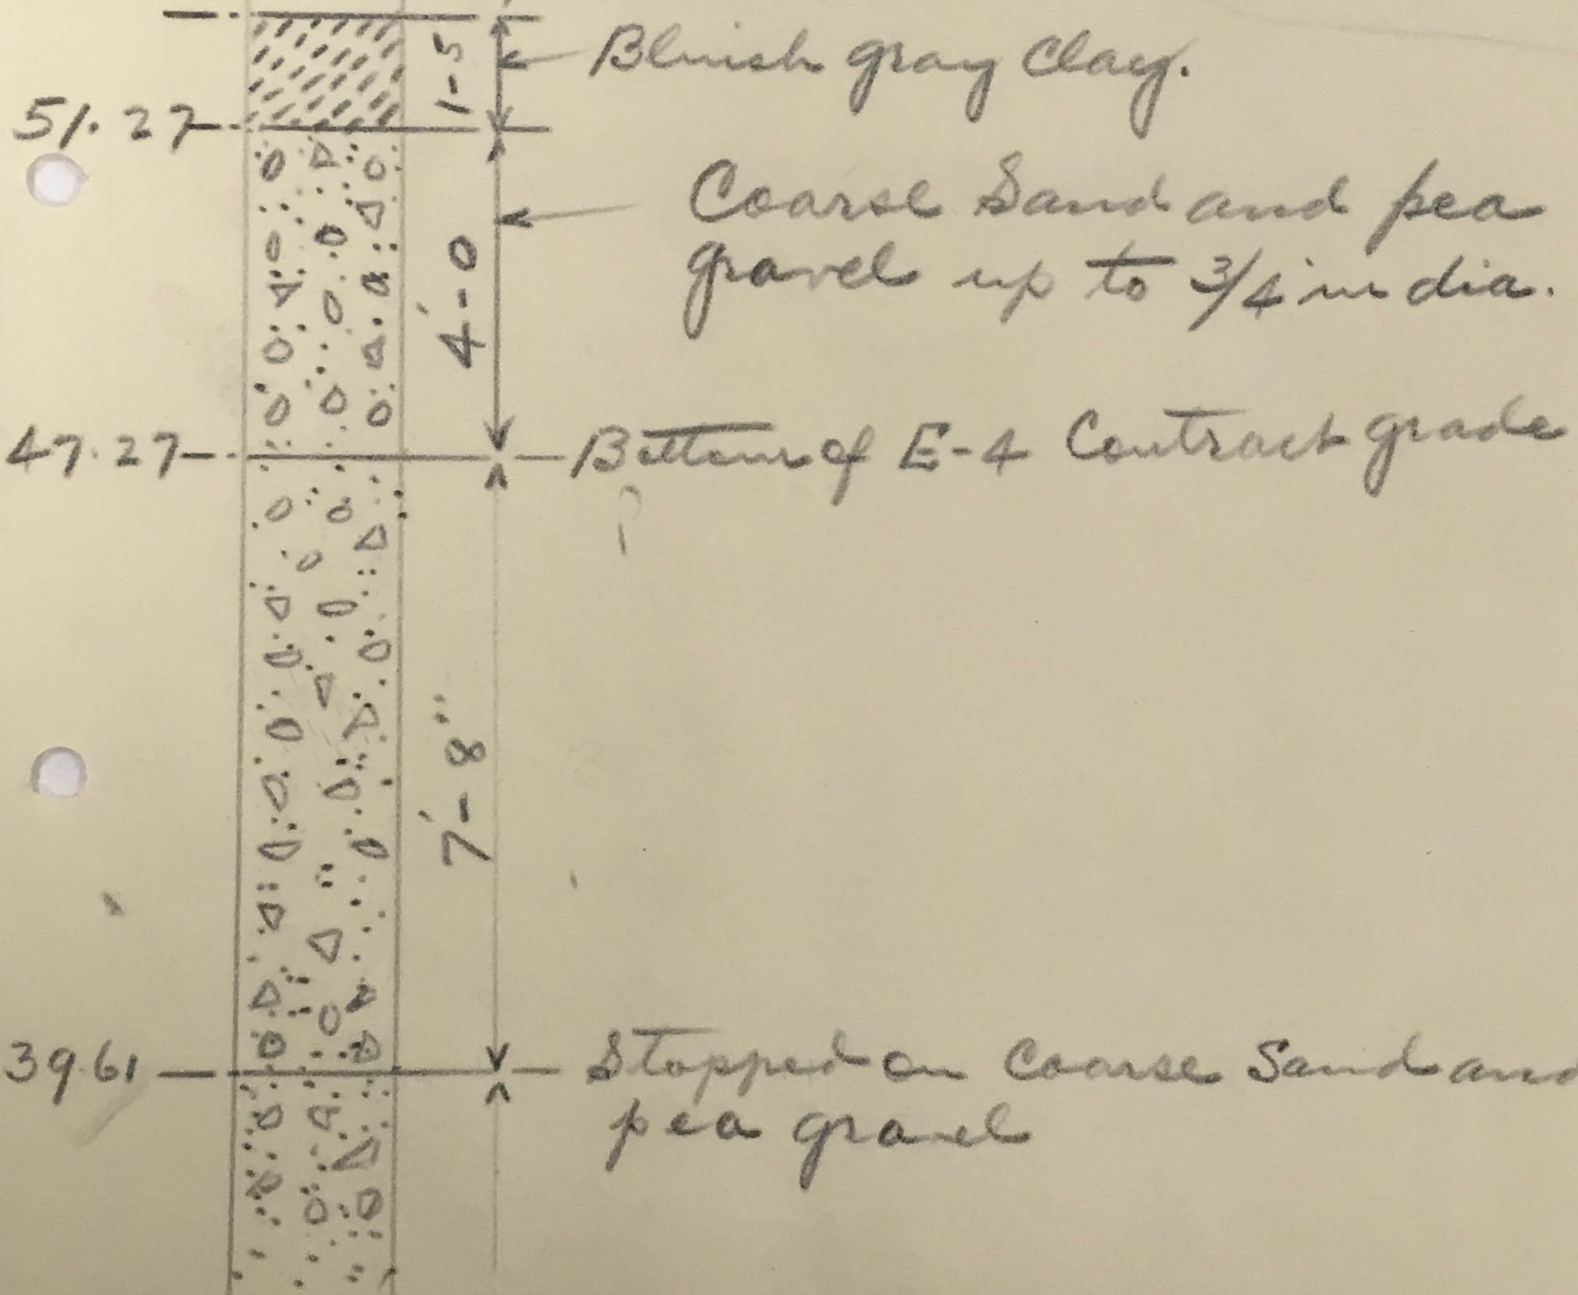 1-5
Bluish gray Clay.
51.27
Coarse Sand and pea
gravel up to 3/4 in dia.
4'-0
47.27
Bottom of E-4 Contract grade
7'-8"
39.61
Stopped on Coarse Sand and
pea gravel